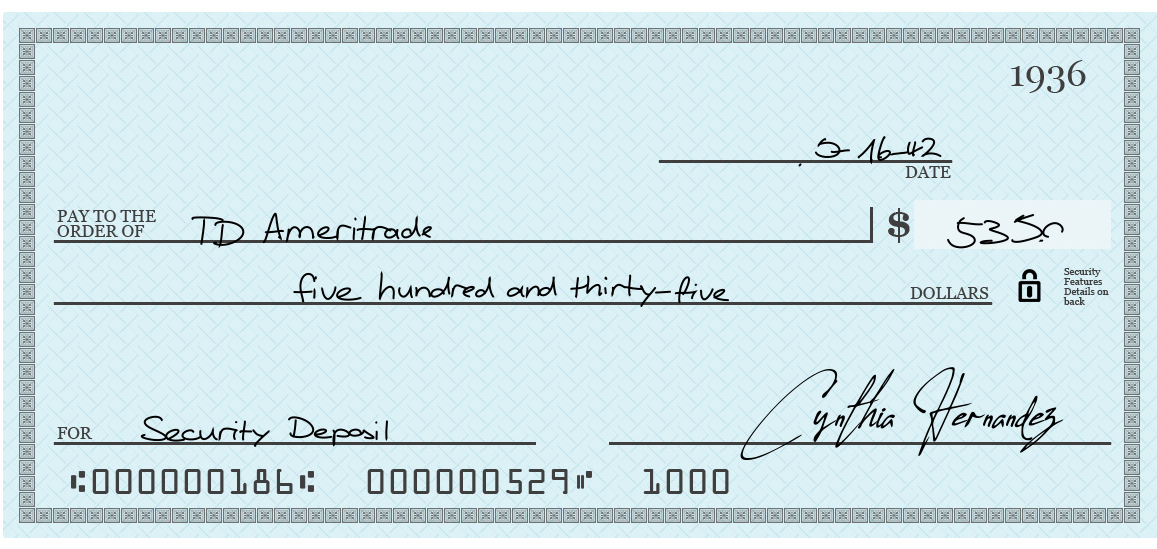 1936
5-16-42
DATE
PAY TO THE
ORDER OF TD Ameritrade $ 535.0
five hundred and thirty-five DOLLARS
Security
Features
Details on
back
FOR Security Deposit Cynthia Hernandez
⑆000000186⑆ 000000529⑈ 1000